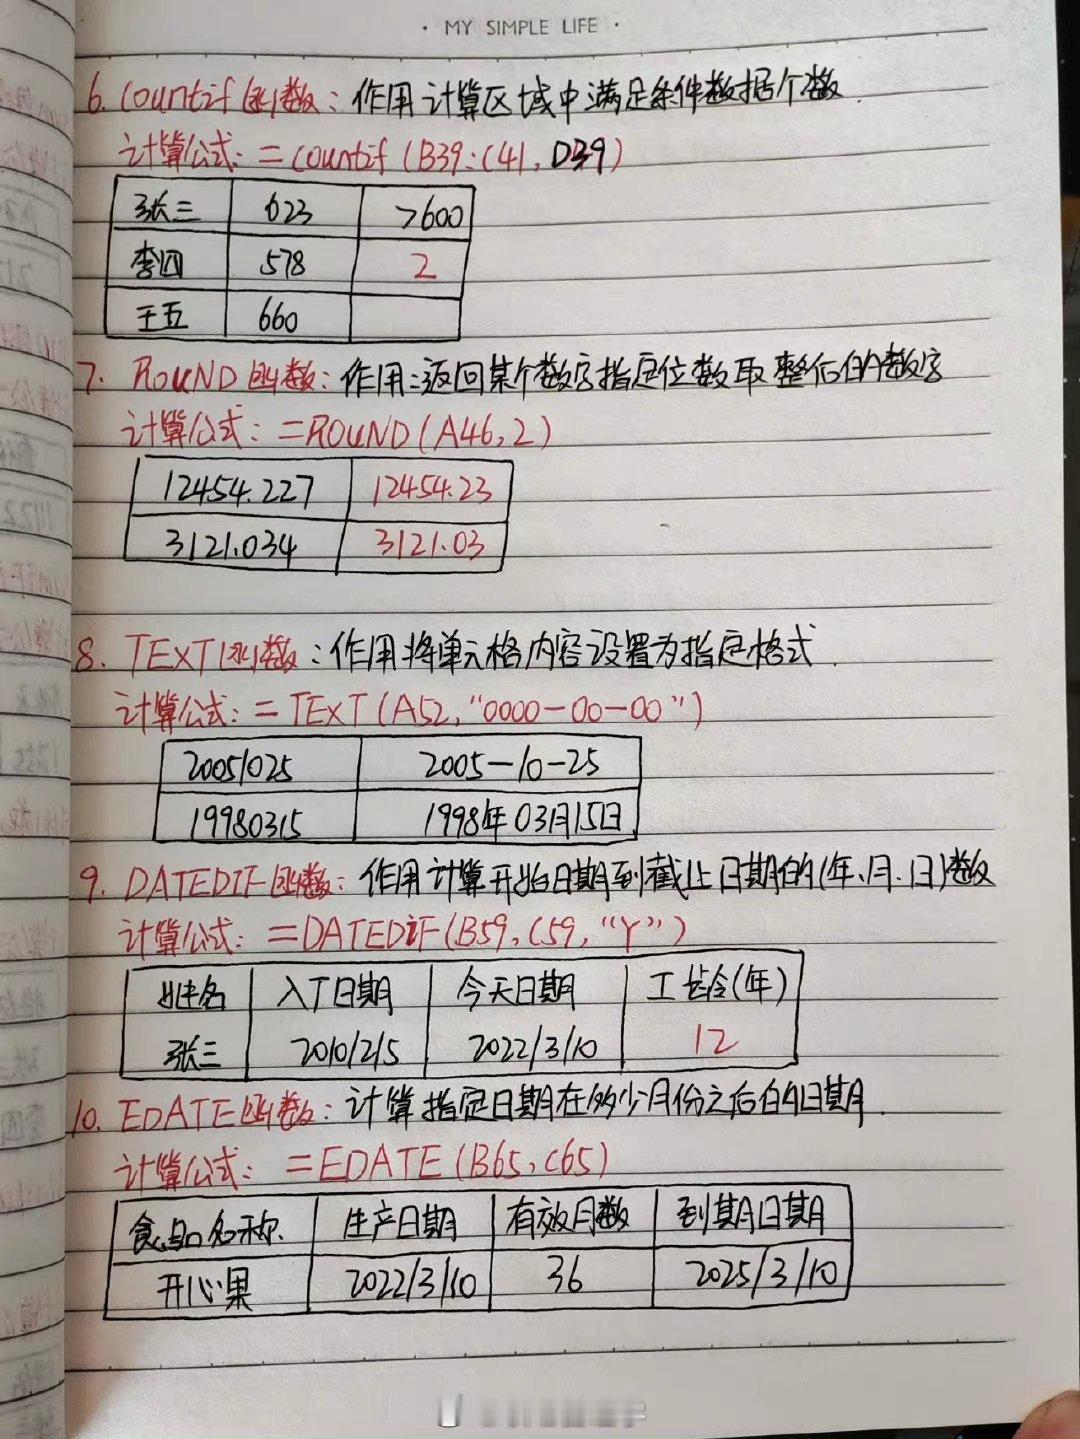 · MY SIMPLE LIFE ·
6. Countif函数：作用计算区域中满足条件数据个数.
计算公式：=countif(B39:C41，D39)
张三 623 >600
李四 578 2
王五 660
7. ROUND函数：作用：返回某个数字指定位数取整后的数字
计算公式：=ROUND(A46,2)
12454.227 12454.23
3121.034 3121.03
8. TEXT函数：作用将单元格内容设置为指定格式.
计算公式：=TEXT(A52,"0000-00-00")
20051025 2005-10-25
19980315 1998年03月15日
9. DATEDIF函数：作用计算开始日期到截止日期的(年、月.日)数
计算公式：=DATEDiF(B59,C59,"Y")
姓名 入丁日期 今天日期 工龄(年)
张三 2010/2/5 2022/3/10 12
10. EDATE函数：计算指定日期在多少月份之后的日期.
计算公式：=EDATE(B65,C65)
食品名称. 生产日期 有效月数 到期日期
开心果 2022/3/10 36 2025/3/10